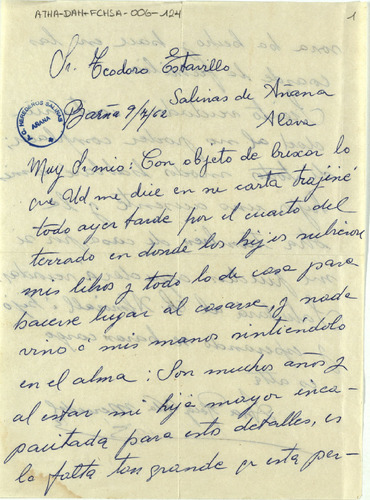 ATHA-DAH-FCHSA-006-124
1
Sr. Teodoro Estavillo
Salinas de Añana
Barña 9/7/62
Alava
HEREDEROS SALINAS
AÑANA
Muy Sr mio: Con objeto de buscar lo
que Ud me dice en su carta trajiné
todo ayer tarde por el cuarto del
terrado en donde los hijos subieron
mis libros y todo lo de casa para
hacerse lugar al casarse, y nada
vino a mis manos sintiéndolo
en el alma: Son muchos años y
al estar mi hija mayor inca-
pacitada para esto detalles, es
la falta tan grande qe esta per-